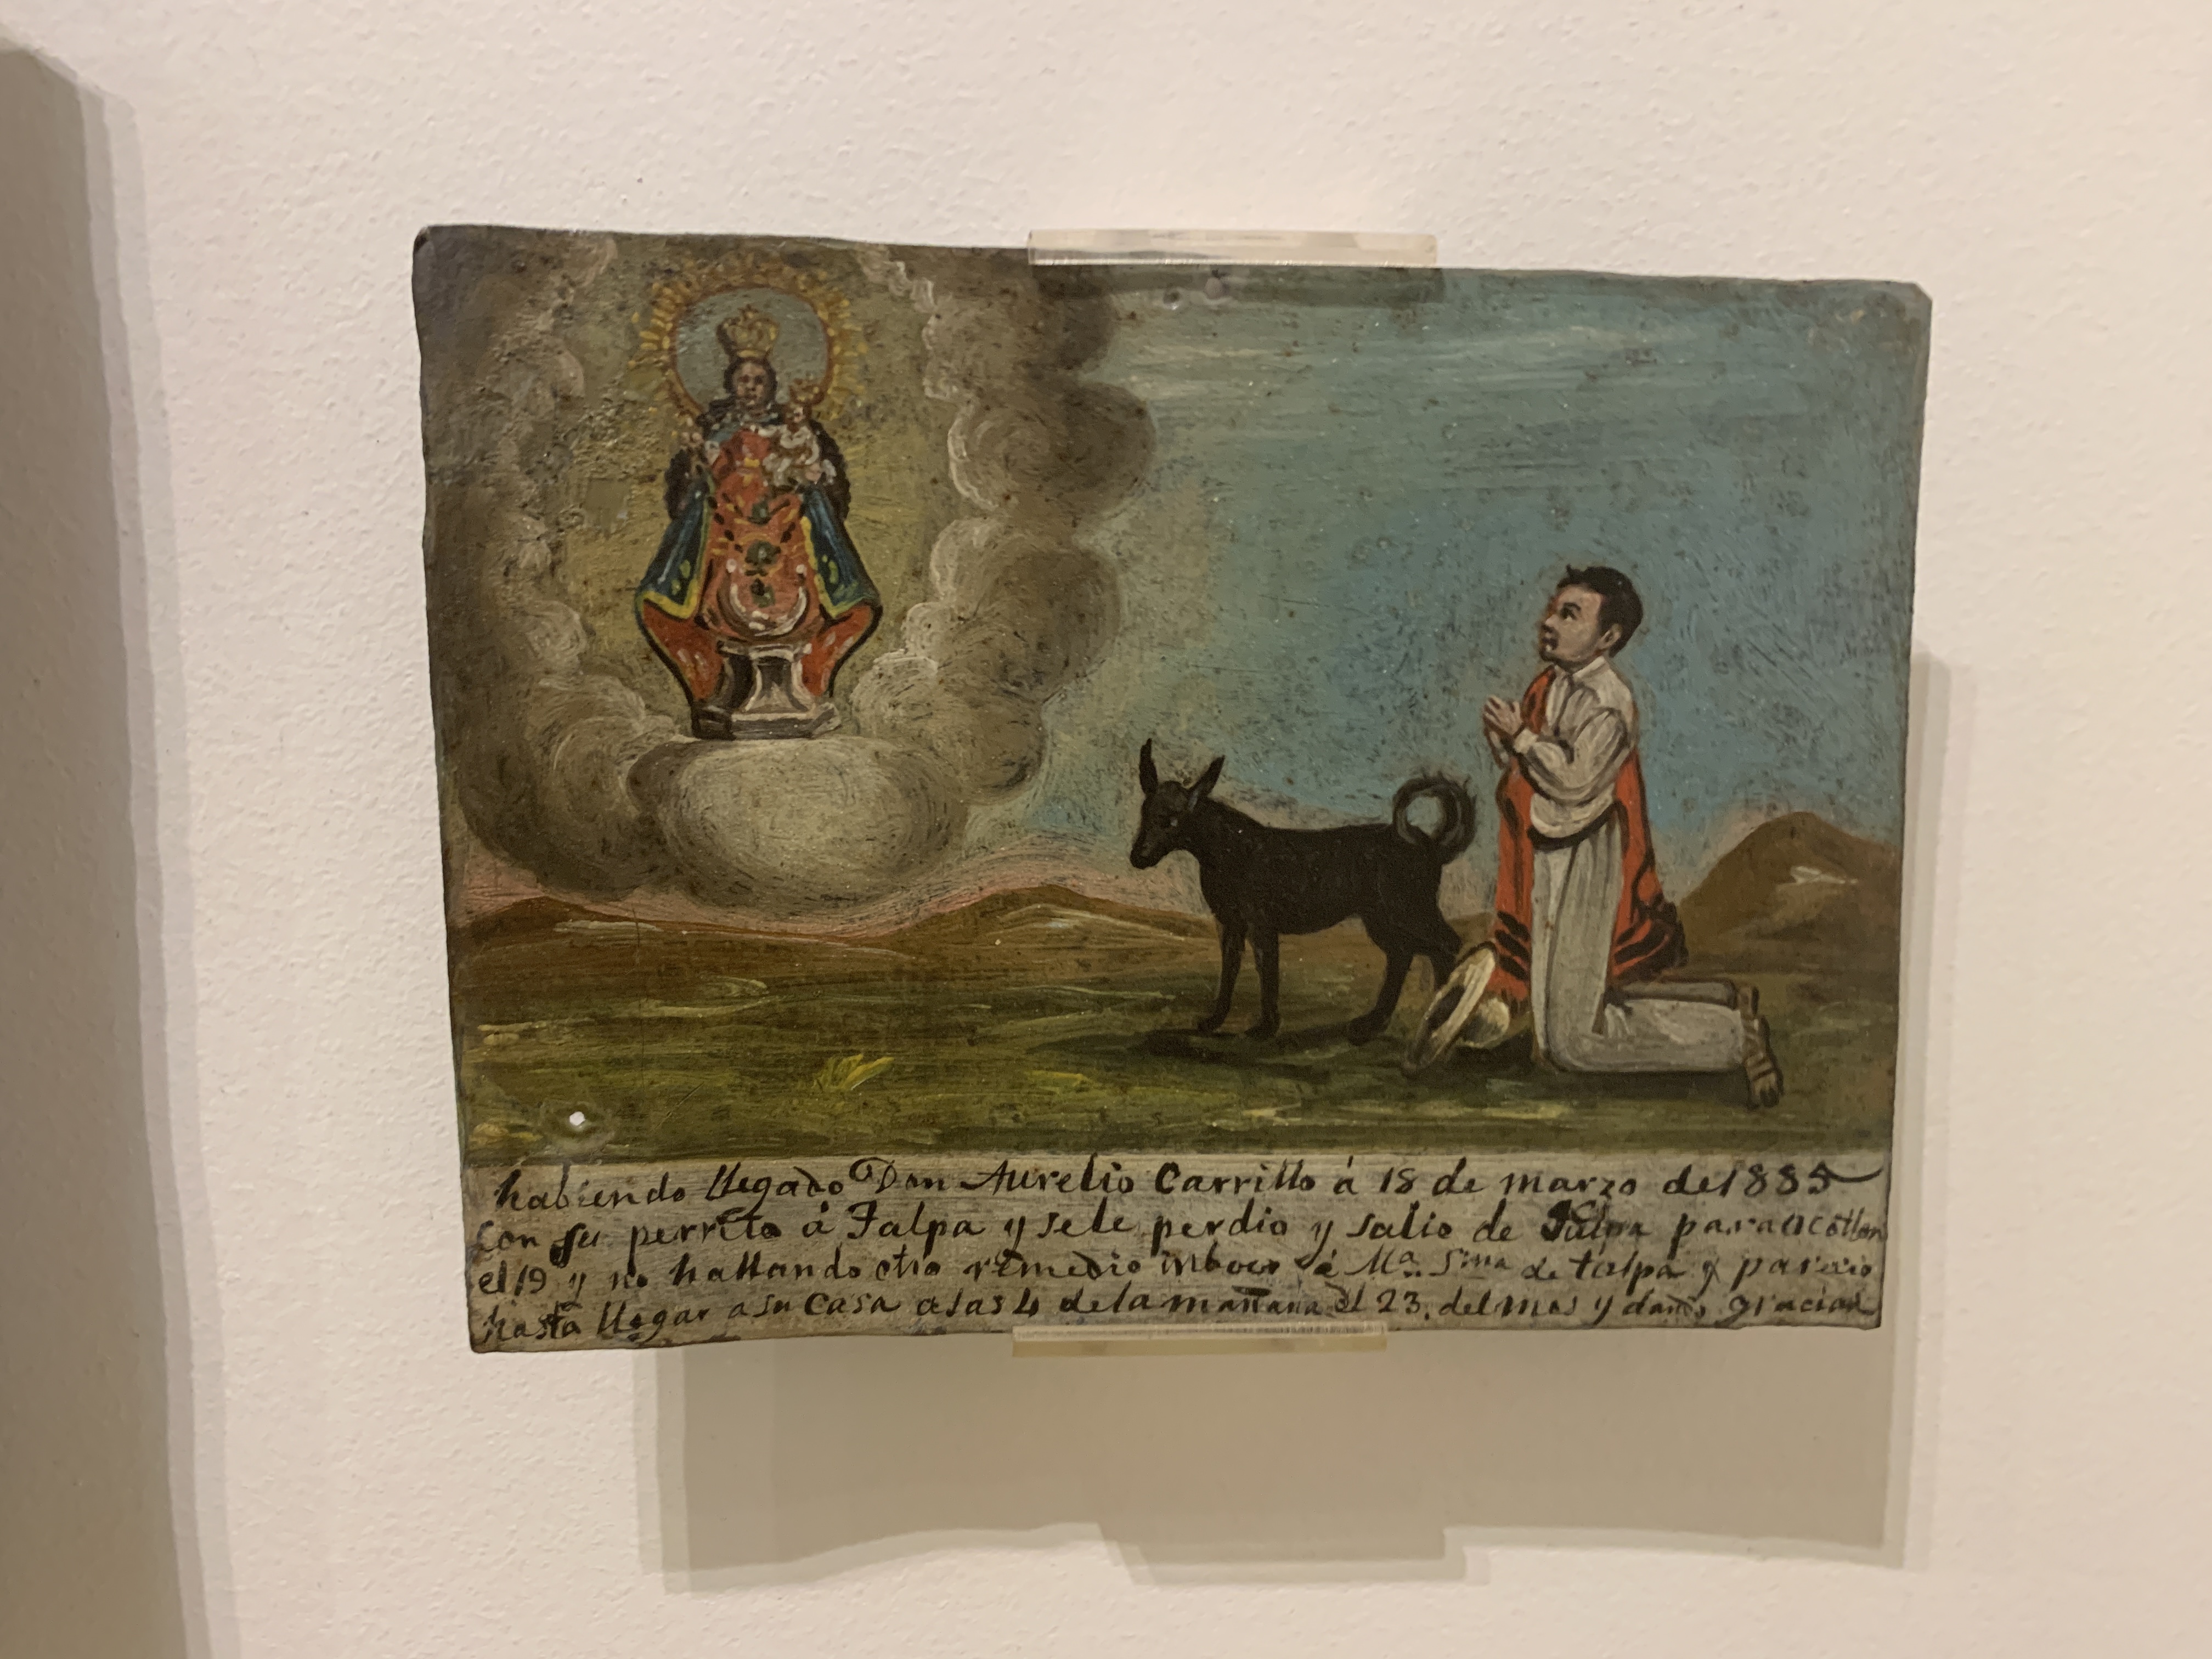 habiendo llegado Don Aurelio Carrillo á 18 de marzo de 1885
con su perrito á Talpa y sele perdio y salio de Talpa para
el 19 y no hallando otro remedio inboco á Ma. Sma de talpa y parecio
hasta llegar a su Casa a las 4 de la mañana el 23. del mes y dando gracias